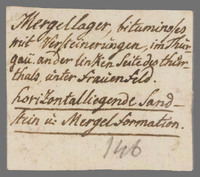 Mergellager, bituminoses
mit Versteinerungen, im Thur-
gau. an der linken Seite des Thur-
thals, unter Frauenfeld.
horizontalliegende Sand-
stein u: Mergel formation.
146